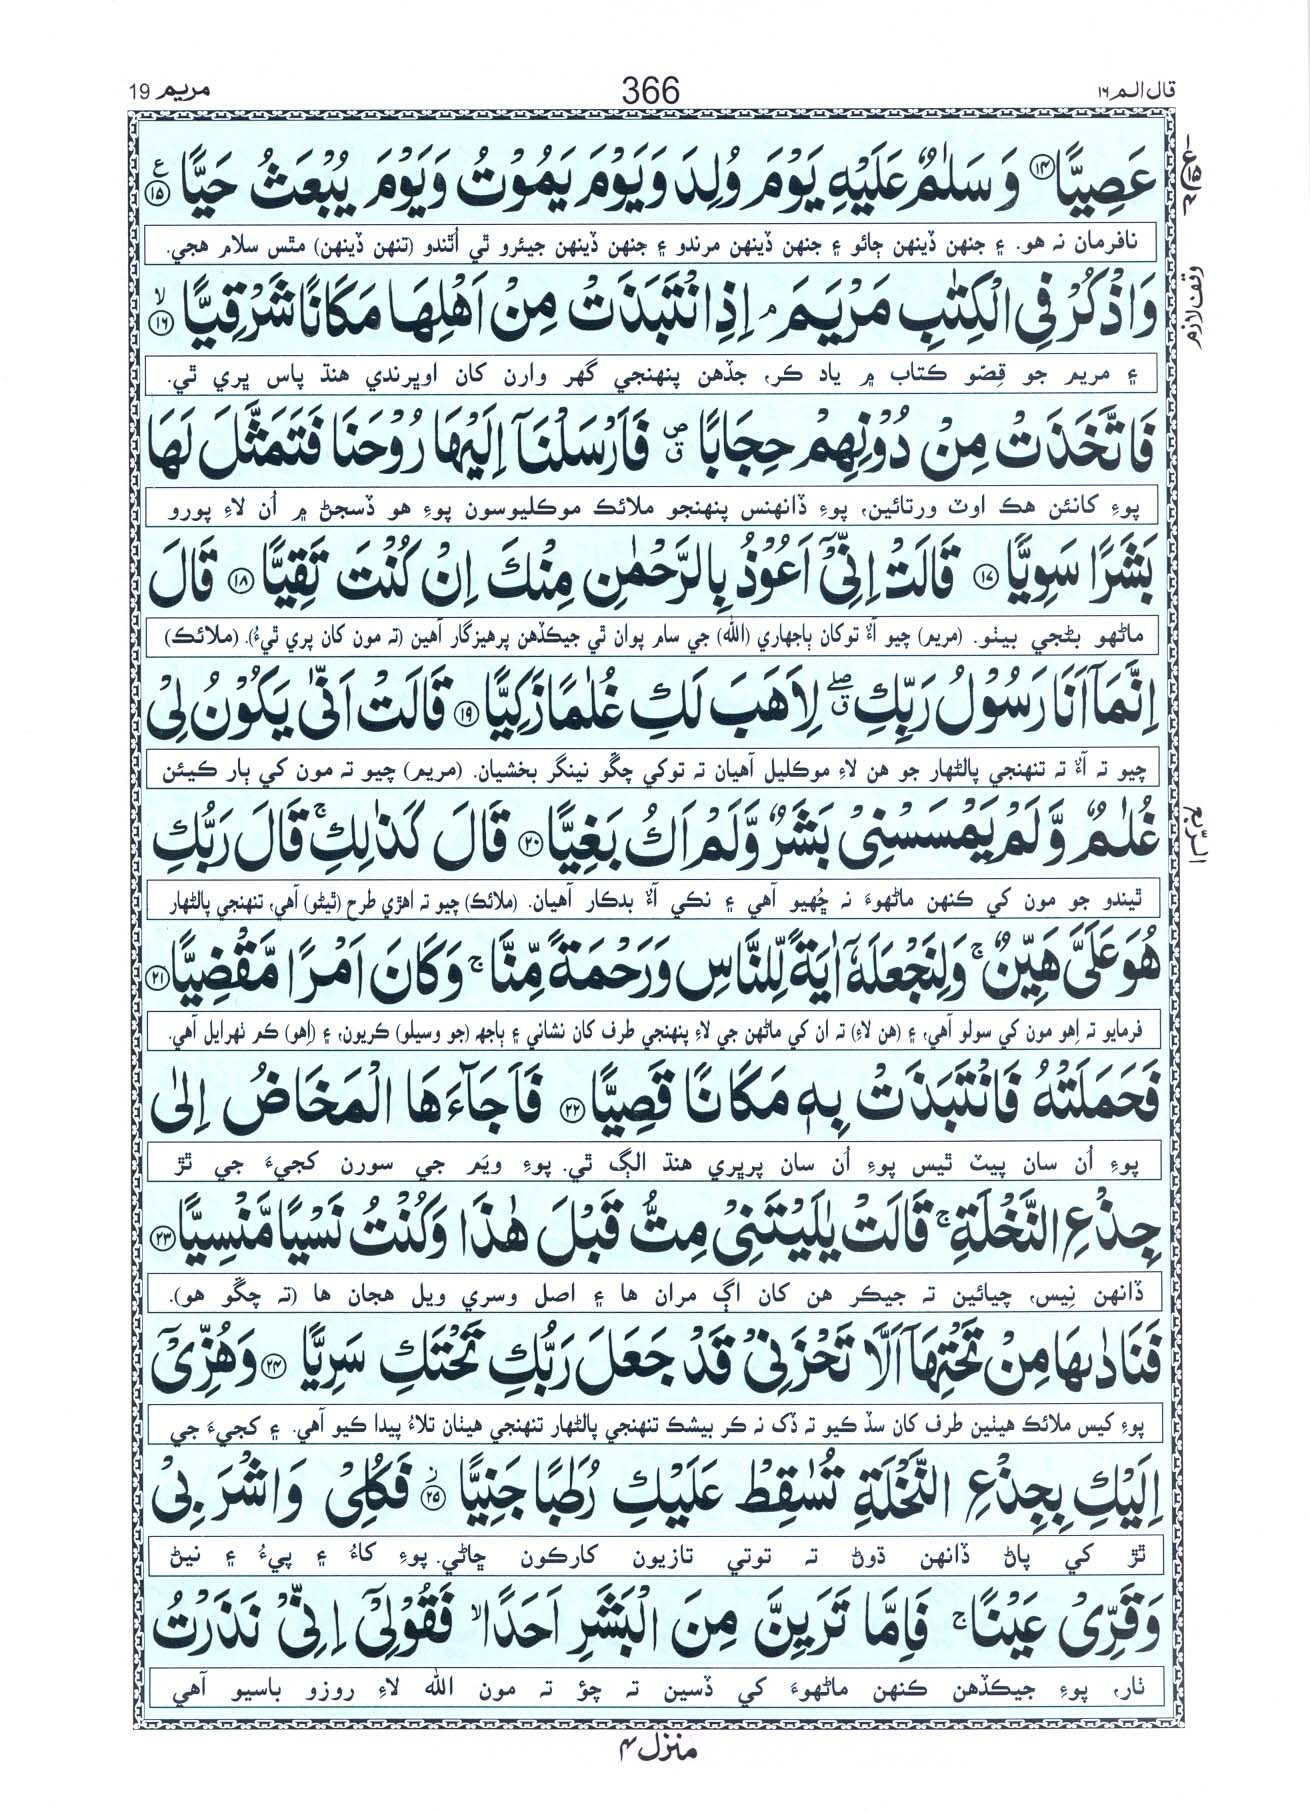 قال الم ١٦
366
مريم 19
عَصِيًّا ۝١٤ وَ سَلٰمٌ عَلَيْهِ يَوْمَ وُلِدَ وَ يَوْمَ يَمُوْتُ وَ يَوْمَ يُبْعَثُ حَيًّا ۝١٥ ع
نافرمان نہ هو. ۽ جنهن ڏينهن ڄائو ۽ جنهن ڏينهن مرندو ۽ جنهن ڏينهن جيئرو ٿي اُٿندو (تنهن ڏينهن) مٿس سلام هجي.
وَاذْكُرْ فِي الْكِتٰبِ مَرْيَمَ ۘ اِذِ انْتَبَذَتْ مِنْ اَهْلِهَا مَكَانًا شَرْقِيًّا ۝١٦ ۙ
وقف لازم
۽ مريم جو قِصّو ڪتاب ۾ ياد ڪر، جڏهن پنهنجي گهر وارن کان اوڀرندي هنڌ پاس پري ٿي.
فَاتَّخَذَتْ مِنْ دُوْنِهِمْ حِجَابًا ۪ فَاَرْسَلْنَاۤ اِلَيْهَا رُوْحَنَا فَتَمَثَّلَ لَهَا
پوءِ کانئن هڪ اوٽ ورتائين، پوءِ ڏانهنس پنهنجو ملائڪ موڪليوسون پوءِ هو ڏسجڻ ۾ اُن لاءِ پورو
بَشَرًا سَوِيًّا ۝١٧ قَالَتْ اِنِّيْۤ اَعُوْذُ بِالرَّحْمٰنِ مِنْكَ اِنْ كُنْتَ تَقِيًّا ۝١٨ قَالَ
ماڻهو بڻجي بيٺو. (مريم) چيو آءٌ توکان ٻاجهاري (الله) جي سام پوان ٿي جيڪڏهن پرهيزگار آهين (تہ مون کان پري ٿيءُ). (ملائڪ)
اِنَّمَاۤ اَنَا رَسُوْلُ رَبِّكِ ۖ لِاَهَبَ لَكِ غُلٰمًا زَكِيًّا ۝١٩ قَالَتْ اَنّٰى يَكُوْنُ لِيْ
چيو تہ آءٌ تہ تنهنجي پالڻهار جو هن لاءِ موڪليل آهيان تہ توکي چڱو نينگر بخشيان. (مريم) چيو تہ مون کي ٻار ڪيئن
غُلٰمٌ وَّ لَمْ يَمْسَسْنِيْ بَشَرٌ وَّ لَمْ اَكُ بَغِيًّا ۝٢٠ قَالَ كَذٰلِكِ ۚ قَالَ رَبُّكِ
ٿيندو جو مون کي ڪنهن ماڻهوءَ نہ ڇُهيو آهي ۽ نڪي آءٌ بدڪار آهيان. (ملائڪ) چيو تہ اهڙي طرح (ٿيڻو) آهي، تنهنجي پالڻهار
هُوَ عَلَيَّ هَيِّنٌ ۚ وَ لِنَجْعَلَهٗۤ اٰيَةً لِّلنَّاسِ وَ رَحْمَةً مِّنَّا ۚ وَ كَانَ اَمْرًا مَّقْضِيًّا ۝٢١
فرمايو تہ اِهو مون کي سولو آهي، ۽ (هن لاءِ) تہ ان کي ماڻهن جي لاءِ پنهنجي طرف کان نشاني ۽ ٻاجهہ (جو وسيلو) ڪريون، ۽ (اِهو) ڪم ٺهرايل آهي.
فَحَمَلَتْهُ فَانْتَبَذَتْ بِهٖ مَكَانًا قَصِيًّا ۝٢٢ فَاَجَآءَهَا الْمَخَاضُ اِلٰى
پوءِ اُن سان پيٽ ٿيس پوءِ اُن سان پرڀري هنڌ الڳ ٿي. پوءِ ويَم جي سورن کجيءَ جي ٿڙ
جِذْعِ النَّخْلَةِ ۚ قَالَتْ يٰلَيْتَنِيْ مِتُّ قَبْلَ هٰذَا وَ كُنْتُ نَسْيًا مَّنْسِيًّا ۝٢٣
ڏانهن نِيس، چيائين تہ جيڪر هن کان اڳ مران ها ۽ اصل وسري ويل هجان ها (تہ چڱو هو).
فَنَادٰىهَا مِنْ تَحْتِهَاۤ اَلَّا تَحْزَنِيْ قَدْ جَعَلَ رَبُّكِ تَحْتَكِ سَرِيًّا ۝٢٤ وَ هُزِّيْۤ
پوءِ کيس ملائڪ هيٺين طرف کان سڏ ڪيو تہ ڏک نہ ڪر بيشڪ تنهنجي پالڻهار تنهنجي هيٺان تلاءُ پيدا ڪيو آهي. ۽ کجيءَ جي
اِلَيْكِ بِجِذْعِ النَّخْلَةِ تُسٰقِطْ عَلَيْكِ رُطَبًا جَنِيًّا ۝٢٥ ز فَكُلِيْ وَ اشْرَبِيْ
ٿڙ کي پاڻ ڏانهن ڌوڻ تہ توتي تازيون کارڪون ڇاڻي. پوءِ کاءُ ۽ پيءُ ۽ نيڻ
وَ قَرِّيْ عَيْنًا ۚ فَاِمَّا تَرَيِنَّ مِنَ الْبَشَرِ اَحَدًا ۙ فَقُوْلِيْۤ اِنِّيْ نَذَرْتُ
ٺار، پوءِ جيڪڏهن ڪنهن ماڻهوءَ کي ڏسين تہ چؤ تہ مون الله لاءِ روزو باسيو آهي
منزل ۴